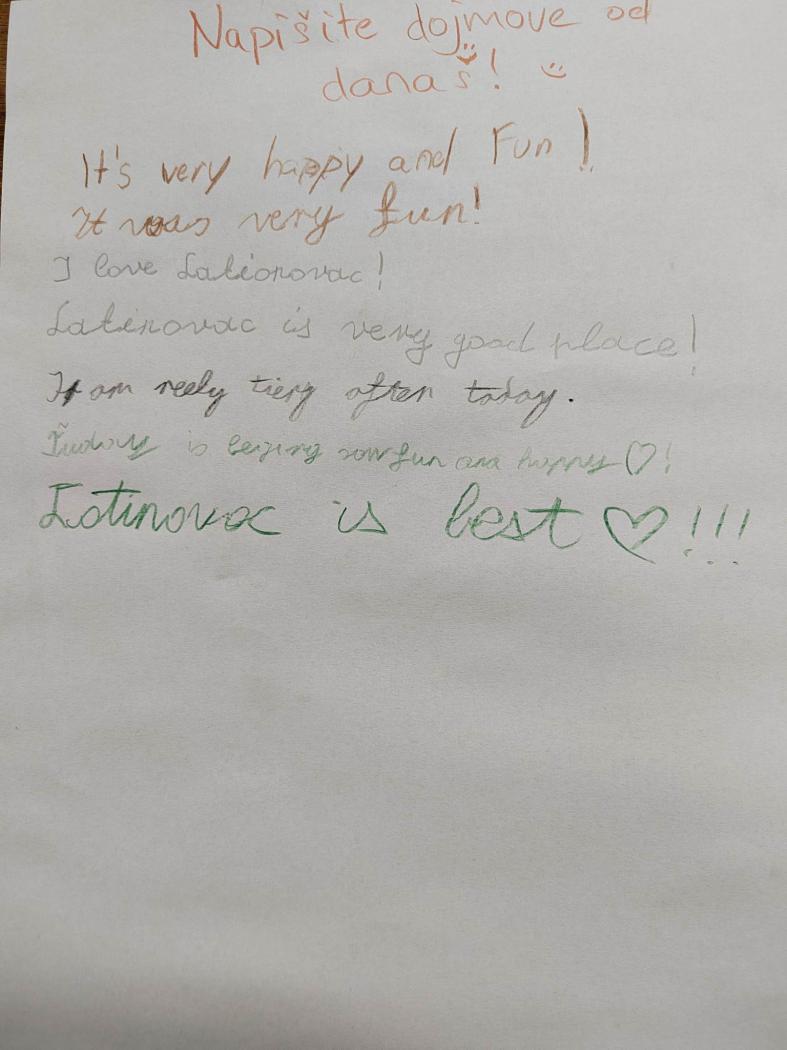 Napišite dojmove od
današ!
It's very happy and Fun!
It was very fun!
I love Lationovac!
Latinovac is very good place!
I am reely tierg often today.
is fun and happy ♡!
Latinovac is best ♡!!!